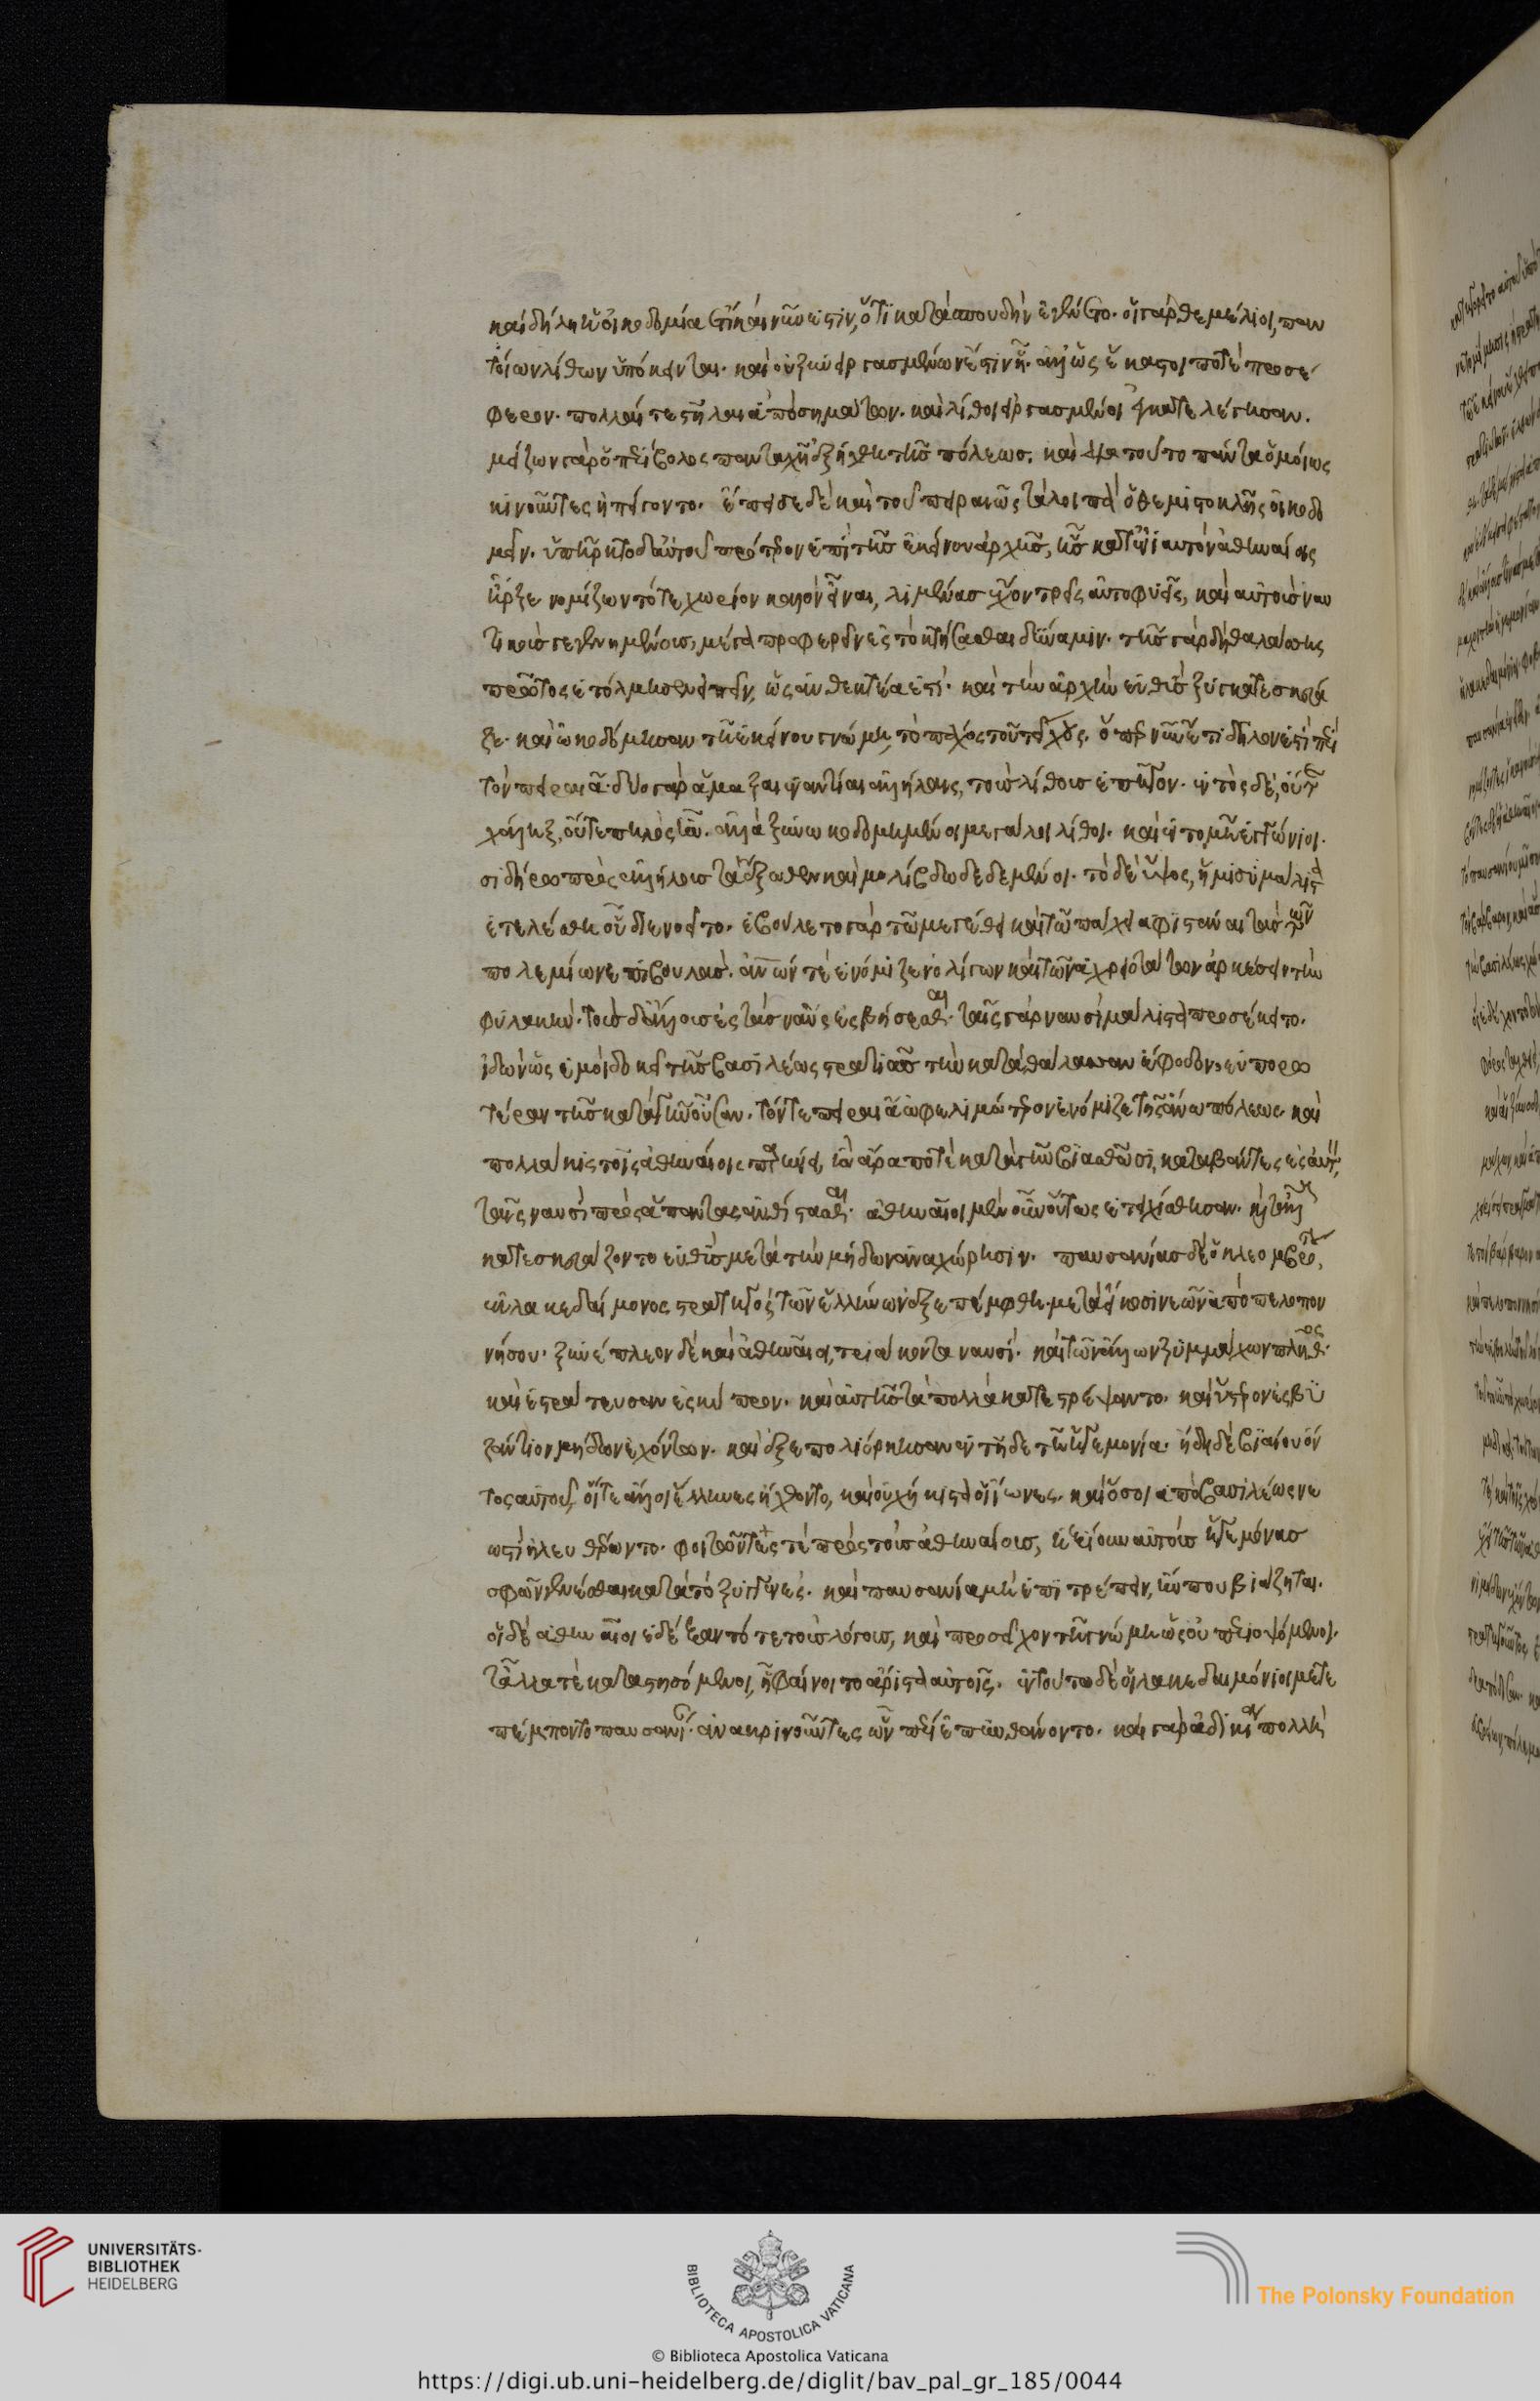 καὶ δήλη ἡ οἰκοδομία ἔτι καὶ νῦν ἐστιν, ὅτι κατὰ σπουδὴν ἐγένετο. οἱ γὰρ θεμέλιοι, παν
τοίων λίθων ὑπόκεινται. καὶ οὐ ξυνειργασμένων ἔστιν ᾗ. ἀλλ' ὡς ἕκαστοι ποτὲ προσέ
φερον. πολλαί τε στῆλαι ἀπὸ σημάτων. καὶ λίθοι εἰργασμένοι ἐγκατελέγησαν.
μείζων γὰρ ὁ περίβολος πανταχῆ ἐξήχθη τῆς πόλεως. καὶ διὰ τοῦτο πάντα ὁμοίως
κινοῦντες ἠπείγοντο. ἔπεισε δὲ καὶ τοῦ πειραιῶς τὰ λοιπὰ ὁ θεμιστοκλῆς οἰκοδο
μεῖν. ὑπῆρκτο δ' αὐτοῦ πρότερον ἐπὶ τῆς ἐκείνου ἀρχῆς, ἧς κατ' ἐνιαυτὸν ἀθηναίοις
ἦρξε νομίζων τό τε χωρίον καλὸν εἶναι, λιμένας ἔχον τρεῖς αὐτοφυεῖς, καὶ αὐτοὺς ναυ
τικοὺς γεγενημένους, μέγα προφέρειν ἐς τὸ κτήσασθαι δύναμιν. τῆς γὰρ δὴ θαλάσσης
πρῶτος ἐτόλμησεν εἰπεῖν, ὡς ἀνθεκτέα ἐστί. καὶ τὴν ἀρχὴν εὐθὺς ξυγκατεσκεύα
ζε. καὶ ᾠκοδόμησαν τῇ ἐκείνου γνώμῃ, τὸ πάχος τοῦ τείχους. ὅπερ νῦν ἔτι δῆλόν ἐστι περὶ
τὸν πειραιᾶ. δύο γὰρ ἅμαξαι ἐναντίαι ἀλλήλαις, τοὺς λίθους ἐπῆγον. ἐντὸς δὲ, οὔτε
χάλιξ, οὔτε πηλὸς ἦν. ἀλλὰ ξυνῳκοδομημένοι μεγάλοι λίθοι. καὶ ἐν τομῇ ἐγγώνιοι.
σιδήρῳ πρὸς ἀλλήλους τὰ ἔξωθεν καὶ μολίβδῳ δεδεμένοι. τὸ δὲ ὕψος, ἥμισυ μάλιστα
ἐτελέσθη οὗ διενοεῖτο. ἐβούλετο γὰρ τῷ μεγέθει καὶ τῷ πάχει ἀφιστάναι τὰς τῶν
πολεμίων ἐπιβουλάς. ἀνθρώπων τὲ ἐνόμιζεν ὀλίγων καὶ τῶν ἀχρειοτάτων ἀρκέσειν τὴν
φυλακήν. τοὺς δ' ἄλλους ἐς τὰς ναῦς ἐσβήσεσθαι. ταῖς γὰρ ναυσὶ μάλιστα προσέκειτο.
ἰδὼν ὡς ἐμοὶ δοκεῖ τῆς βασιλέως στρατιᾶς τὴν κατὰ θάλασσαν ἔφοδον, εὐπορω
τέραν τῆς κατὰ γῆν οὖσαν. τόν τε πειραιᾶ ὠφελιμώτερον ἐνόμιζε τῆς ἄνω πόλεως. καὶ
πολλάκις τοῖς ἀθηναίοις παρῄνει, ἢν ἄρα ποτὲ κατὰ γῆν βιασθῶσι, καταβάντες ἐς αὐτὸν,
ταῖς ναυσὶ πρὸς ἅπαντας ἀνθίστασθαι. ἀθηναῖοι μὲν οὖν οὕτως ἐτειχίσθησαν. καὶ τἆλλα
κατεσκευάζοντο εὐθὺς μετὰ τὴν μήδων ἀναχώρησιν. παυσανίας δὲ ὁ κλεομβρότου,
ἐκ λακεδαίμονος στρατηγὸς τῶν ἑλλήνων ἐξεπέμφθη. μετὰ εἴκοσι νεῶν ἀπὸ πελοπον
νήσου. ξυνέπλεον δὲ καὶ ἀθηναῖοι, τριάκοντα ναυσί. καὶ τῶν ἄλλων ξυμμάχων πλῆθος.
καὶ ἐστράτευσαν ἐς κύπρον. καὶ αὐτῆς τὰ πολλὰ κατεστρέψαντο. καὶ ὕστερον ἐς βυ
ζάντιον μήδων ἐχόντων. καὶ ἐξεπολιόρκησαν ἐν τῇδε τῇ ἡγεμονίᾳ. ἤδη δὲ βιαίου ὄν
τος αὐτοῦ, οἵ τε ἄλλοι ἕλληνες ἤχθοντο, καὶ οὐχ ἥκιστα οἱ ἴωνες. καὶ ὅσοι ἀπὸ βασιλέως νε
ωστὶ ἠλευθέρωντο. φοιτῶντές τε πρὸς τοὺς ἀθηναίους, ἠξίουν αὐτοὺς ἡγεμόνας
σφῶν γενέσθαι κατὰ τὸ ξυγγενές. καὶ παυσανίᾳ μὴ ἐπιτρέπειν, ἤν που βιάζηται.
οἱ δὲ ἀθηναῖοι ἐδέξαντό τε τοὺς λόγους, καὶ προσεῖχον τῇ γνώμῃ ὡς οὐ περιοψόμενοι.
τἆλλα τὲ καταστησόμενοι, ᾗ φαίνοιτο ἄριστα αὐτοῖς. ἐν τούτῳ δὲ οἱ λακεδαιμόνιοι μετε
πέμποντο παυσανίαν. ἀνακρινοῦντες ὧν πέρι ἐπυνθάνοντο. καὶ γὰρ ἀδικία πολλὴ
UNIVERSITÄTS-
BIBLIOTHEK
HEIDELBERG
BIBLIOTECA APOSTOLICA VATICANA
The Polonsky Foundation
© Biblioteca Apostolica Vaticana
https://digi.ub.uni-heidelberg.de/diglit/bav_pal_gr_185/0044